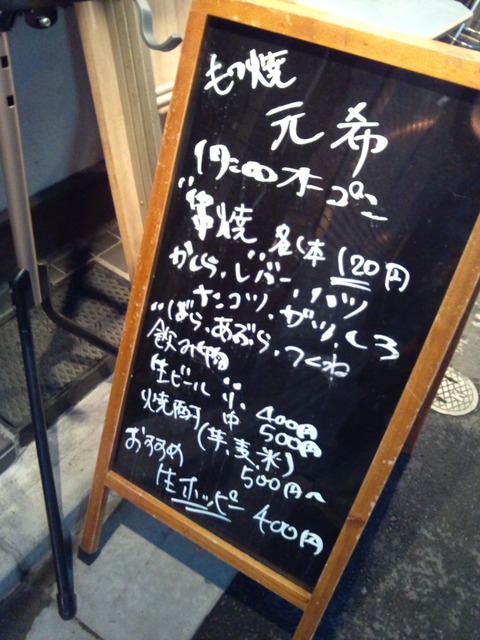 もつ焼
元希
17:00 オープン
"串焼" 各1本 120円
かしら、レバー、ハツ
ナンコツ、ガツ、しろ
ばら、あぶら、つくね
飲み物
生ビール 小 400円
中 500円
焼酎 (芋、麦、米)
500円〜
おすすめ
生ホッピー 400円